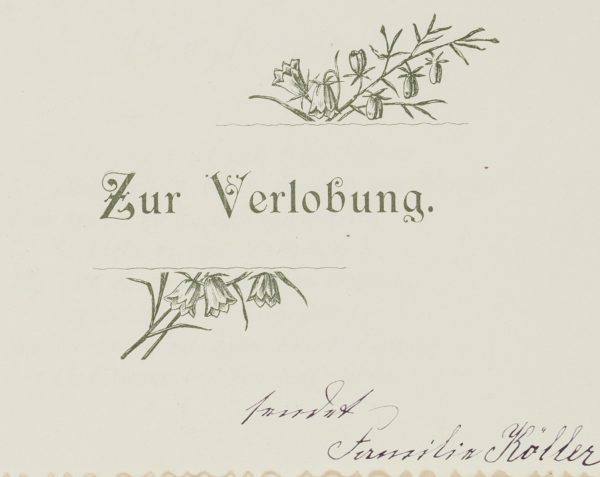 Zur Verlobung.
sendet
Familie Köller